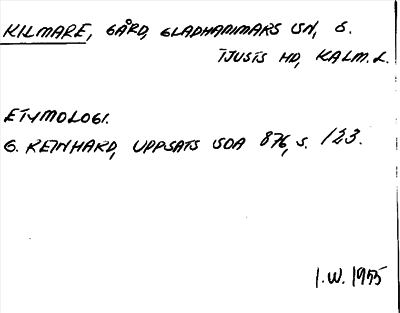 KILMARE, GÅRD, GLADHAMMARS SN, S.
TJUSTS HD, KALM. L.
ETYMOLOGI.
G. REINHARD, UPPSATS SOA 876, S. 123.
I.W. 1955